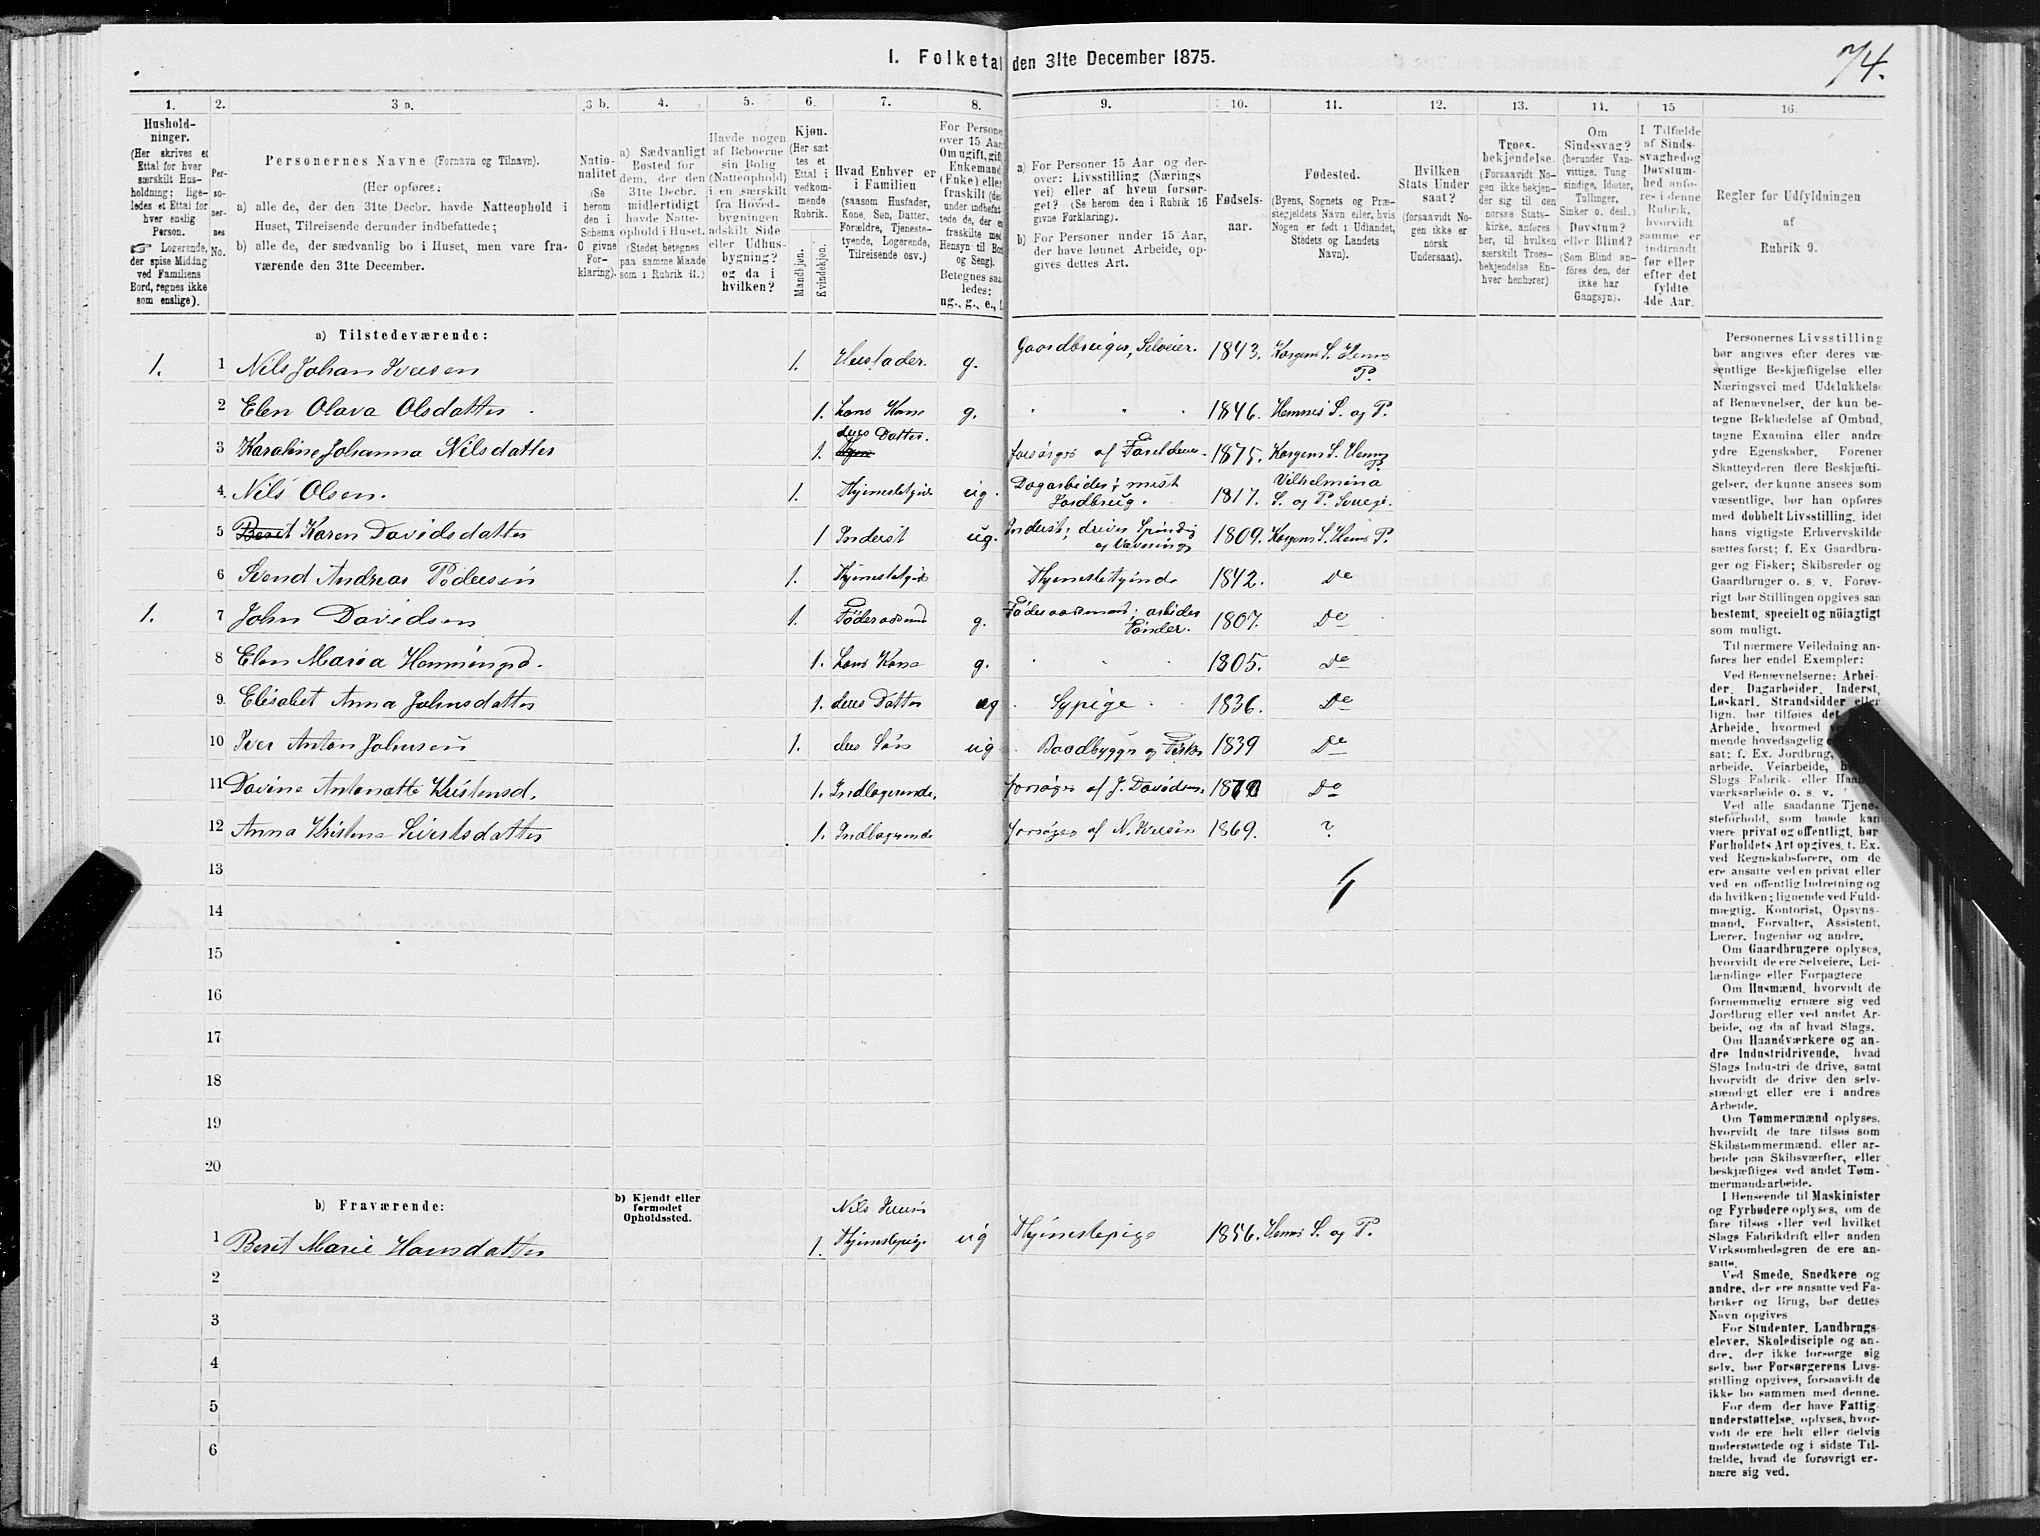 74.
I. Folketal den 31te December 1875.
1. 2. 3 a. 3 b. 4. 5. 6. 7. 8. 9. 10. 11. 12. 13. 14. 15 16.
Hushold-
ninger.
(Her skrives et
Ettal for hver
særskilt Hus-
holdning; lige-
ledes et Ettal for
hver enslig
Person.
☞ Logerende,
der spise Middag
ved Familiens
Bord, regnes ikke
som enslige).
Per-
so-
ner-
nes
No.
Personernes Navne (Fornavn og Tilnavn).
(Her opføres:
a) alle de, der den 31te Decbr. havde Natteophold i
Huset, Tilreisende derunder indbefattede;
b) alle de, der sædvanlig bo i Huset, men vare fra-
værende den 31te December.
Natio-
nalitet
(Se
herom
den i
Schema
C givne
For-
klaring).
a) Sædvanligt
Bosted for
dem, der den
31te Decbr.
midlertidigt
havde Natte-
ophold i Huset.
(Stedet betegnes
paa samme Maade
som i Rubrik 11.)
Havde nogen
af Beboerne
sin Bolig
(Natteophold)
i en særskilt
fra Hoved-
bygningen
adskilt Side
eller Udhus-
bygning?
og da i
hvilken?
Kjøn.
(Her sæt-
tes et
Ettal i
vedkom-
mende
Rubrik.
Mandkjøn.
Kvindekjøn.
Hvad Enhver er
i Familien
(saasom Husfader,
Kone, Søn, Datter,
Forældre, Tjeneste-
tyende, Logerende,
Tilreisende osv.)
For Persone
over 15 Aar
Om ugift, gift
Enkemand
(Enke) eller
fraskilt (de
under indbefat-
tede de, der er
fraskilte med
Hensyn til Bor
og Seng).
Betegnes saa
ledes:
ug., g., e., f.
a) For Personer 15 Aar og der-
over: Livsstilling (Nærings
vei) eller af hvem forsør-
get? (Se herom den i Rubrik 16
givne Forklaring).
b) For Personer under 15 Aar,
der have lønnet Arbeide, op-
gives dettes Art.
Fødsels-
aar.
Fødested.
(Byens, Sognets og Præ-
stegjeldets Navn eller, hvis
Nogen er født i Udlandet,
Stedets og Landets
Navn).
Hvilken
Stats Under
saat?
(forsaavidt No-
gen ikke er
norsk
Undersaat).
Troes-
bekjendelse.
(Forsaavidt No-
gen ikke bekjen-
der sig til den
norske Stats-
kirke, anføres
her, til hvilken
særskilt Troes-
bekjendelse En-
hver henhører).
Om
Sindssvag?
(herunder Van-
vittige, Tung
sindige, Idioter,
Tullinger,
Sinker o. desl.)
Døvstum?
eller Blind?
(Som Blind an-
føres den, der
ikke har
Gangsyn).
I Tilfælde
af Sinds-
svaghed og
Døvstum-
hed anfø-
res i denne
Rubrik,
hvorvidt
samme er
indtraadt
før eller
efter det
fyldte
4de Aar.
Regler for Udfyldningen
af
Rubrik 9.
a) Tilstedeværende:
1. 1 Nils Johan Iversen 1. Husfader. g. Gaardbruger, Selveier. 1843. Korgens S. Hemnes P.
2 Elen Olava Olsdatter 1. hans Kone g. " " 1846. Hemnes S. og P.
3 Karoline Johanna Nilsdatter 1. deres Datter. forsørges af Forældrene. 1875. Korgens S. Hemns P.
4. Nils Olsen. 1. Tjenestetyende ug. Dagarbeider; mest Jordbrug. 1817. Vilhelmina S. og P. Sverige.
5 Berit Karen Davidsdatter 1 Inderst ug. Inderst; driver Spinding og Vævning 1809. Korgens S. Hemns P.
6 Svend Andreas Pedersen 1. Tjenestetyende Tjenestetyende 1842. Do
1. 7 John Davidsen 1. Føderaadsmand g. Føderaadsmand; arbeider Tønder. 1807. Do
8 Elen Maria Hemmingsd. 1. hans Kone g. " " 1805. Do
9. Elisabet Anna Johnsdatter 1. deres Datter ug Sypige 1836. Do
10 Iver Anton Johnsen 1. des Søn ug Baadbygger og Fisker 1839 Do
11 Davine Antonette Kristensd. 1. Indlogerende. forsørges af J. Davidsen. 1870 Do
12 Anna Kristine Sivertsdatter 1. Indlogerende forsørges af N. Iversen 1869. ?
13
14
15
16
17
18
19
20
b) Fraværende:
b) Kjendt eller
formodet
Opholdssted.
1 Berit Marie Hansdatter 1. Nils Iversens Tjenestepige ug Tjenestepige 1856. Hemns S. og P.
2
3
4
5
6
Personernes Livsstilling
bør angives efter deres væ-
sentlige Beskjæftigelse eller
Næringsvei med Udelukkelse
af Benævnelser, der kun be-
tegne Beklædelse af Ombud,
tagne Examina eller andre
ydre Egenskaber. Forener
Skatteyderen flere Beskjæfti-
gelser, der kunne ansees som
væsentlige, bør han opføres
med dobbelt Livsstilling, idet
hans vigtigste Erhvervskilde
sættes først; f. Ex Gaardbru-
ger og Fisker; Skibsreder og
Gaardbruger o. s. v. Forøv-
rigt bør Stillingen opgives saa
bestemt, specielt og nöiagtigt
som muligt.
Til nærmere Veiledning an-
føres her endel Exempler:
Ved Benævnelserne: Arbei-
der, Dagarbeider, Inderst,
Løskarl, Strandsidder eller
lign. bør tilføies det
Arbeide, hvormed
mende hovedsagelig
sat; f. Ex. Jordbrug,
arbeide, Veiarbeide,
Slags Fabrik- eller
værksarbeide o. s. v.
Ved alle saadanne Tjene-
steforhold, som baade kan
være privat og offentligt, bør
Forholdets Art opgives, t. Ex.
ved Regnskabsførere, om de
ere ansatte ved en privat eller
ved en offentlig Indretning og
da hvilken; lignende ved Fuld-
mægtig, Kontorist, Opsyns-
mand, Forvalter, Assistent,
Lærer, Ingeniør og andre.
Om Gaardbrugere oplyses,
hvorvidt de ere Selveiere, Lei-
lændinge eller Forpagtere
Om Husmænd, hvorvidt de
fornemmelig ernære sig ved
Jordbrug eller ved andet Ar-
beide, og da af hvad Slags.
Om Haandværkere og an-
dre Industridrivende, hvad
Slags Industri de drive, samt
hvorvidt de drive den selv-
stændigt eller ere i andres
Arbeide.
Om Tømmermænd oplyses,
hvorvidt de fare tilsøs som
Skibstømmermænd, eller ar-
beide paa Skibsværfter, eller
beskjæftiges ved andet Tøm-
mermandsarbeide.
I Henseende til Maskinister
og Fyrbødere oplyses, om de
fare tilsøs eller ved hvilket
Slags Fabrikdrift eller anden
Virksomhedsgren de ere an-
satte.
Ved Smede, Snedkere og
andre, der ere ansatte ved Fa-
briker og Brug, bør dettes
Navn opgives
For Studenter, Landbrugs-
elever, Skoledisciple og an-
dre, der ikke forsørge sig
selv, bør Forsørgerens Livs-
stilling opgives, forsaavidt de
ikke bo sammen med denne.
For dem, der have Fattig-
understøttelse, oplyses, hvor-
vidt de ere helt eller delvis
understøttede og i sidste Til-
fælde, hvad de forøvrigt er-
nære sig ved.